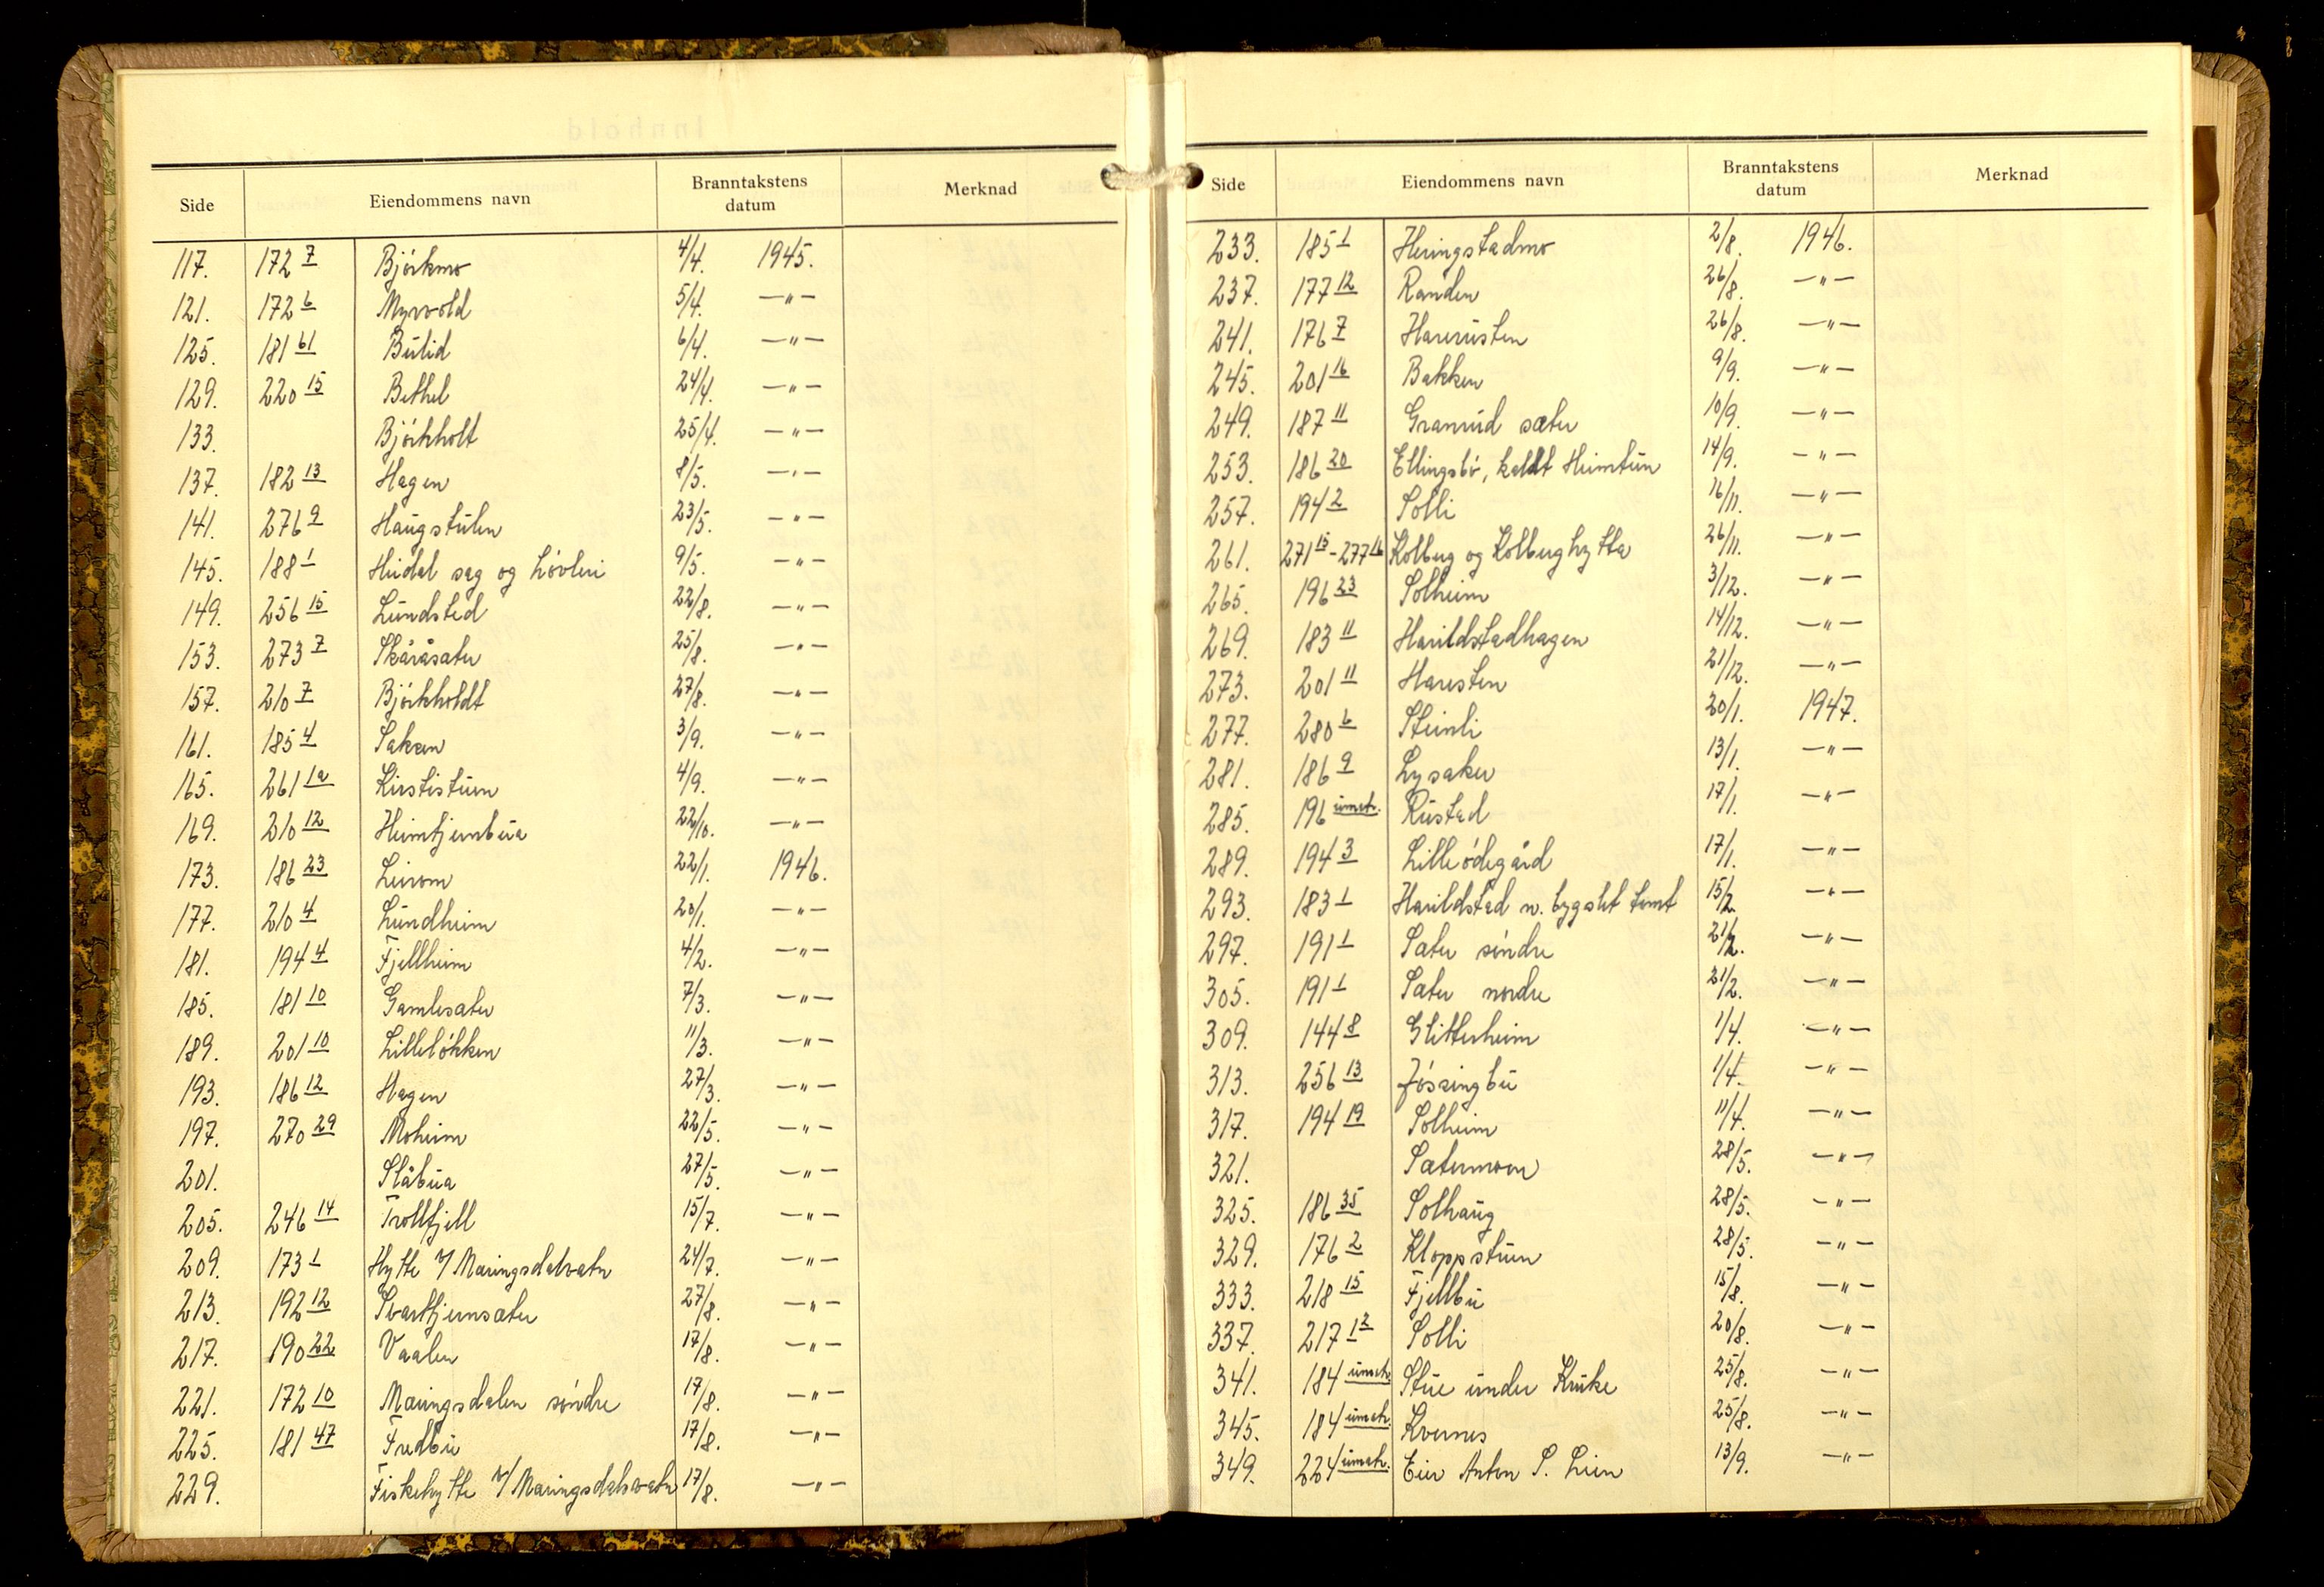 Side Eiendommens navn Branntakstens datum Merknad
117. 172 7 Björkmo 4/4. 1945.
121. 172 6 Myrvold 5/4. —"—
125. 181 61 Bulid 6/4. —"—
129. 220 15 Bethel 24/4. —"—
133. Björkholt 25/4. —"—
137. 182 13 Hagen 8/5. —"—
141. 276 9 Haugstulen 23/5. —"—
145. 188 1 Heidal sag og høvleri 9/5. —"—
149. 256 15 Lundsted 22/8. —"—
153. 273 7 Skåråsæter 25/8. —"—
157. 210 7 Björkholdt 27/8. —"—
161. 185 4 3/9. —"—
165. 261 1a Kirstistuen 4/9. —"—
169. 210 12 Heimtjernbua 22/10. —"—
173. 186 23 Leirom 22/1. 1946.
177. 210 4 Lundheim 20/1. —"—
181. 194 4 Fjellheim 4/2. —"—
185. 181 10 Gamlesæter 7/3. —"—
189. 201 10 Lillelökken 11/3. —"—
193. 186 12 Hagen 27/3. —"—
197. 270 29 Moheim 22/5. —"—
201. Slåbua 27/5. —"—
205. 246 14 Trollfjell 15/7. —"—
209. 173 1 Hytte v/ Mæringsdalvatn 24/7. —"—
213. 192 12 Svarttjernsæter 27/8. —"—
217. 190 22 Vaalen 17/8. —"—
221. 172 10 Mæringsdalen söndre 17/8. —"—
225. 181 47 Fredbu 17/8. —"—
229. Fiskehytte v/ Mæringsdalsvatn 17/8. —"—
Side Eiendommens navn Branntakstens datum Merknad
233. 185 1 Heringstadmo 2/8. 1946.
237. 177 12 Randen 26/8. —"—
241. 176 7 Harerusten 26/8. —"—
245. 201 16 Bakken 9/9. —"—
249. 187 11 Granrud sæter 10/9. —"—
253. 186 20 Ellingsbö, kaldt Heimtun 14/9. —"—
257. 194 2 Solli 16/11. —"—
261. 271 15 - 277 16 Kolberg og Kolberghytta 26/11. —"—
265. 196 23 Solheim 3/12. —"—
269. 183 11 Harildstadhagen 14/12. —"—
273. 201 11 Haresten 21/12. —"—
277. 280 6 Steinli 20/1. 1947.
281. 186 9 Lysaker 13/1. —"—
285. 196 umatr. Rustad 17/1. —"—
289. 194 3 Lilleödegård 17/1. —"—
293. 183 1 Harildstad n. bygslet tomt 15/2. —"—
297. 191 1 Sæter söndre 21/2. —"—
305. 191 1 Sæter nordre 21/2. —"—
309. 144 8 Glitterheim 1/4. —"—
313. 256 13 Jössingbu 1/4. —"—
317. 194 19 Solheim 11/4. —"—
321. Sætermoen 28/5. —"—
325. 186 35 Solhaug 28/5. —"—
329. 176 2 Kloppstuen 28/5. —"—
333. 218 15 Fjellbu 15/8. —"—
337. 217 12 Solli 20/8. —"—
341. 184 umatr. Stue under Kruke 25/8. —"—
345. 184 umatr. Kvernes 25/8. —"—
349. 224 umatr. Eier Anton S. Lien 13/9. —"—